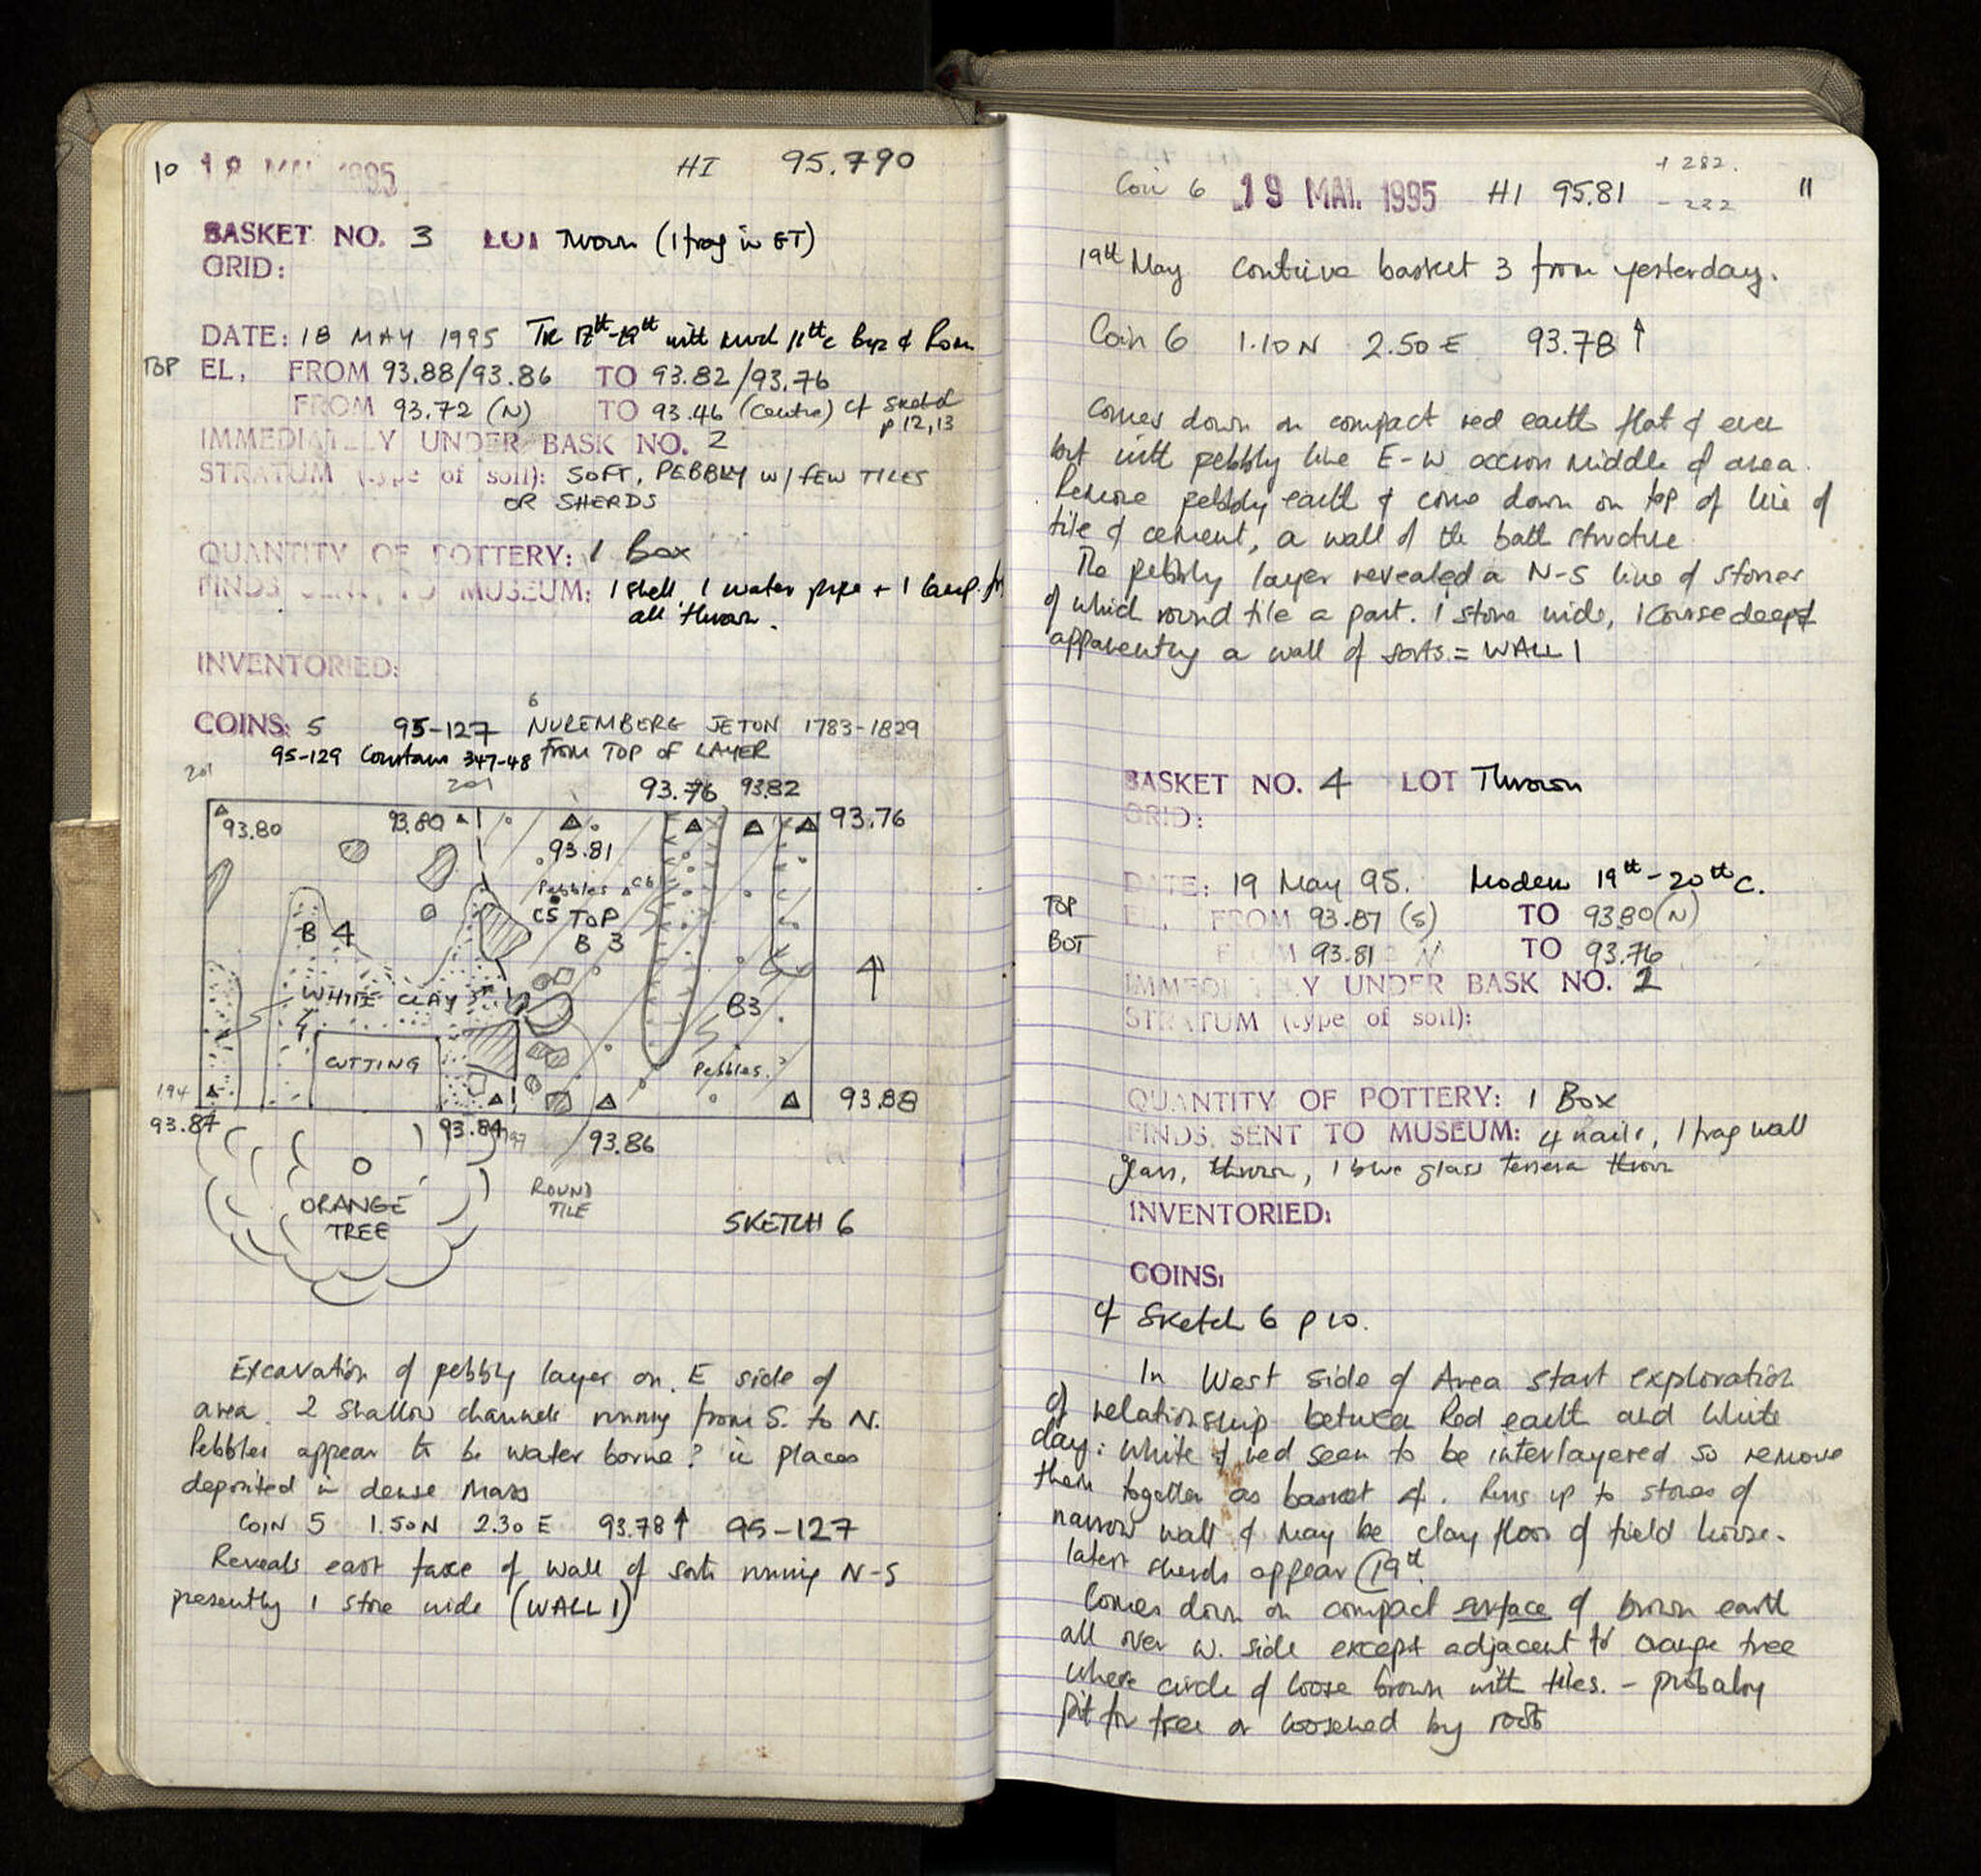 10 18 MAI 1995 HI 95.790
BASKET NO. 3 LOT Thrown (1 frag in GT)
GRID:
DATE: 18 MAY 1995 17th-19th with much 11th c Byz & Rom
TOP EL, FROM 93.88/93.86 TO 93.82/93.76
FROM 93.72 (N) TO 93.46 (centre) cf sketch
p 12,13
IMMEDIATELY UNDER BASK NO. 2
STRATUM (type of soil): SOFT, PEBBLY W/ FEW TILES
OR SHERDS
QUANTITY OF POTTERY: 1 Box
FINDS SENT TO MUSEUM: 1 shell 1 water pipe + 1 lamp fr
all thrown.
INVENTORIED:
COINS: 5 95-127 6 NUREMBERG JETON 1783-1829
95-129 Constans 347-48 FROM TOP OF LAYER
201 201 93.76 93.82
93.80 93.80 93.76
93.81
Pebbles C6
C5 TOP
B 4 B 3
WHITE CLAY B3
CUTTING Pebbles.
194 93.88
93.87 93.84 197 93.86
ORANGE
TREE
ROUND
TILE
SKETCH 6
Excavation of pebbly layer on E side of
area. 2 shallow channels running from S. to N.
Pebbles appear to be water borne? in places
deposited in dense mass
COIN 5 1.50N 2.30 E 93.78↑ 95-127
Reveals east face of wall of sorts running N-S
presently 1 stone wide (WALL 1)
Coin 6 19 MAI. 1995 HI 95.81 + 282. - 222 11
19th May Continue basket 3 from yesterday.
Coin 6 1.10 N 2.50 E 93.78↑
Comes down on compact red earth flat & even
but with pebbly line E-W across middle of area.
Remove pebbly earth & come down on top of line of
tile & cement, a wall of the bath structure
The pebbly layer revealed a N-S line of stones
of which round tile a part. 1 stone wide, 1 course deep &
apparently a wall of sorts = WALL 1
BASKET NO. 4 LOT Thrown
GRID:
DATE: 19 May 95. Modern 19th-20th C.
TOP EL, FROM 93.87 (S) TO 93.80 (N)
BOT FROM 93.81 N TO 93.76
IMMEDIATELY UNDER BASK NO. 2
STRATUM (type of soil):
QUANTITY OF POTTERY: 1 Box
FINDS SENT TO MUSEUM: 4 nails, 1 frag wall
glass, thrown, 1 blue glass tessera thrown
INVENTORIED:
COINS:
cf Sketch 6 p 10.
In West side of Area start exploration
of relationship between Red earth and White
clay: white & red seem to be interlayered so remove
them together as basket 4. Runs up to stones of
narrow wall & may be clay floor of field house.
latest sherds appear 19th.
Comes down on compact surface of brown earth
all over W. side except adjacent to orange tree
where circle of loose brown with tiles. - probably
pit for tree or loosened by roots